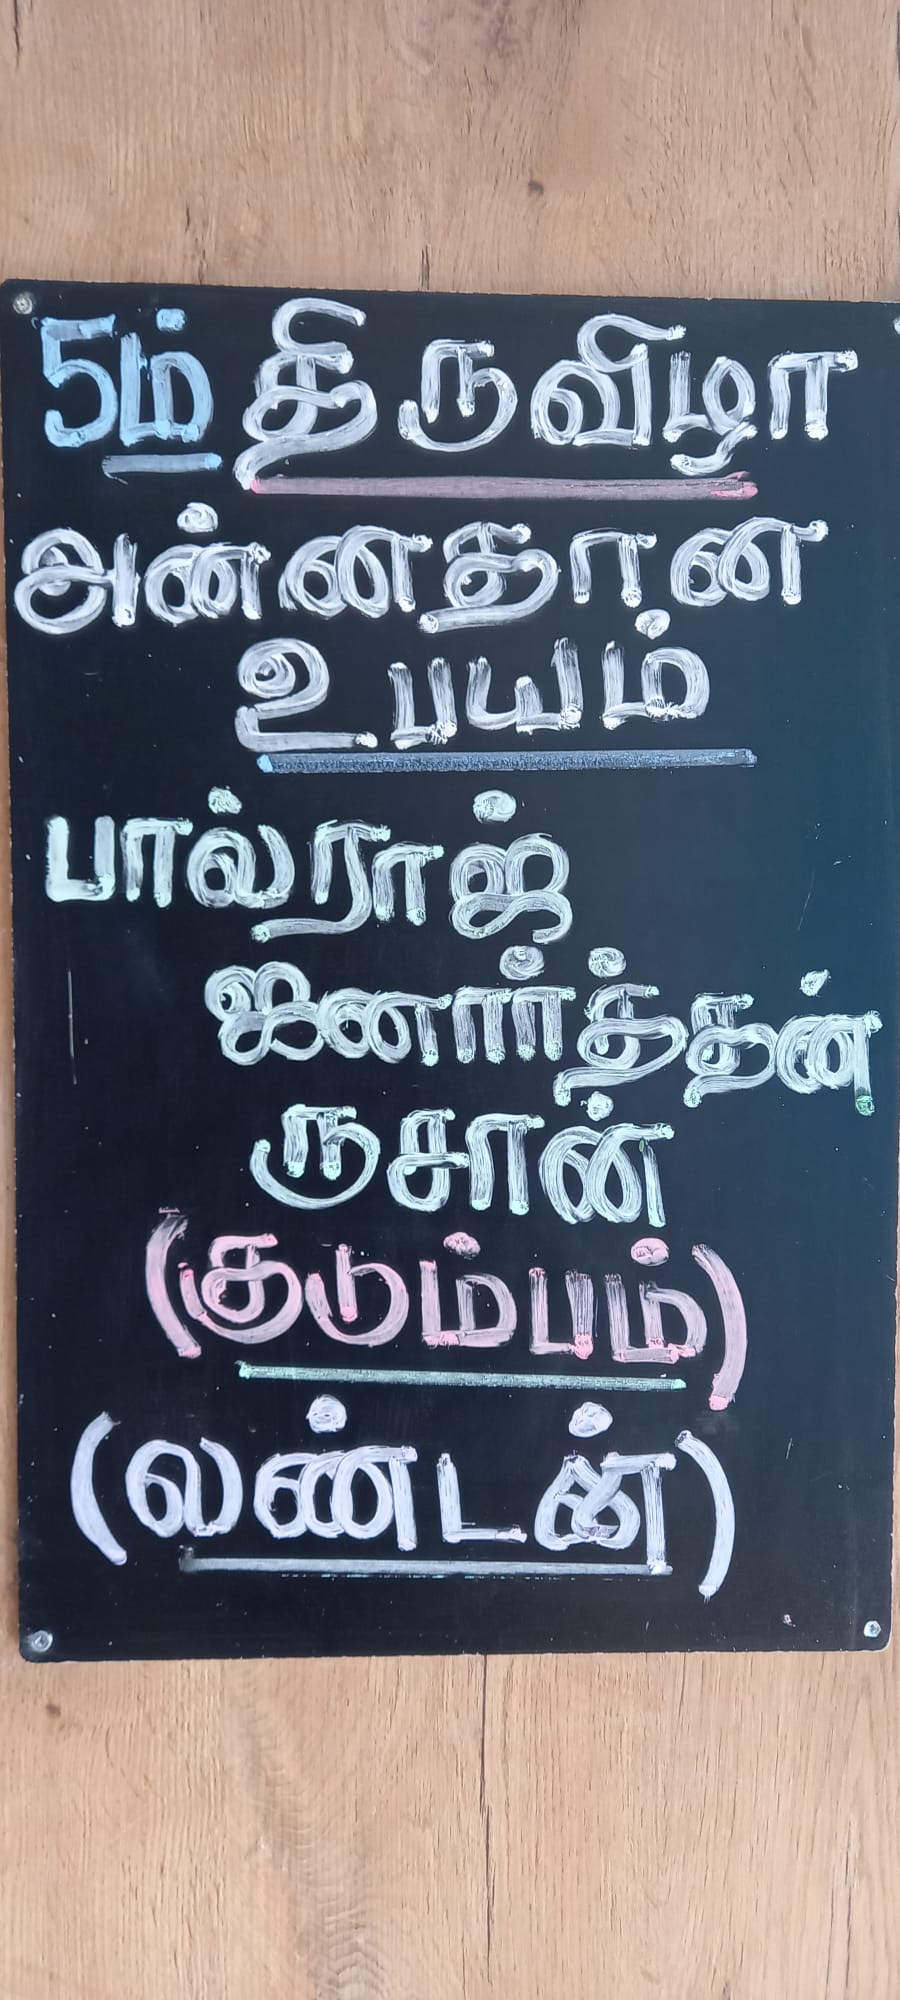 5ம் திருவிழா
அன்னதான
உபயம்
பால்ராஜ்
ஜனார்த்தன்
ருசான்
(குடும்பம்)
(லண்டன்)